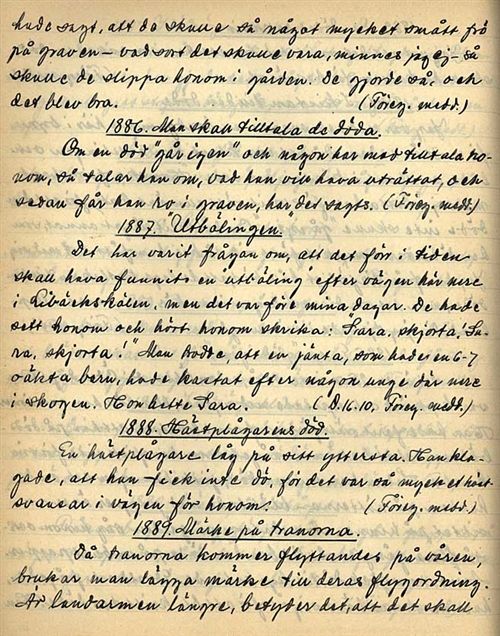 hade sagt, att de skulle så något mycket smått frö
på graven – vad sort det skulle vara, minnes jag ej – så
skulle de slippa honom i gården. De gjorde så, och
det blev bra. (Föreg. medd.)
1886. Man skall tilltala de döda.
Om en död "går igen" och någon har mod tilltala ho-
nom, så talar han om, vad han vill hava uträttat, och
sedan får han ro i graven, har det sagts. (Föreg. medd.)
1887. "Utbölingen."
Det har varit frågan om, att det för i tiden
skall hava funnits en "utböling" efter vägen här nere
i Libäckskölen, men det var före mina dagar. De hade
sett honom och hört honom skrika: "Sara, skjorta! Sa-
ra, skjorta!" Man trodde, att en jänta, som hade en 6-7
oäkta barn, hade kastat efter någon unge där nere
i skogen. Hon hette Sara. (D. 16.10. Föreg. medd.)
1888. Hästplågarens död.
En hästplågare låg på sitt yttersta. Han kla-
gade, att han fick inte dö, för det var så mycket häst-
svansar i vägen för honom. (Föreg. medd.)
1889. Märke på tranorna.
Då tranorna kommer flyttandes på våren,
brukar man lägga märke till deras flygordning.
Är landarmen längre, betyder det, att det skall